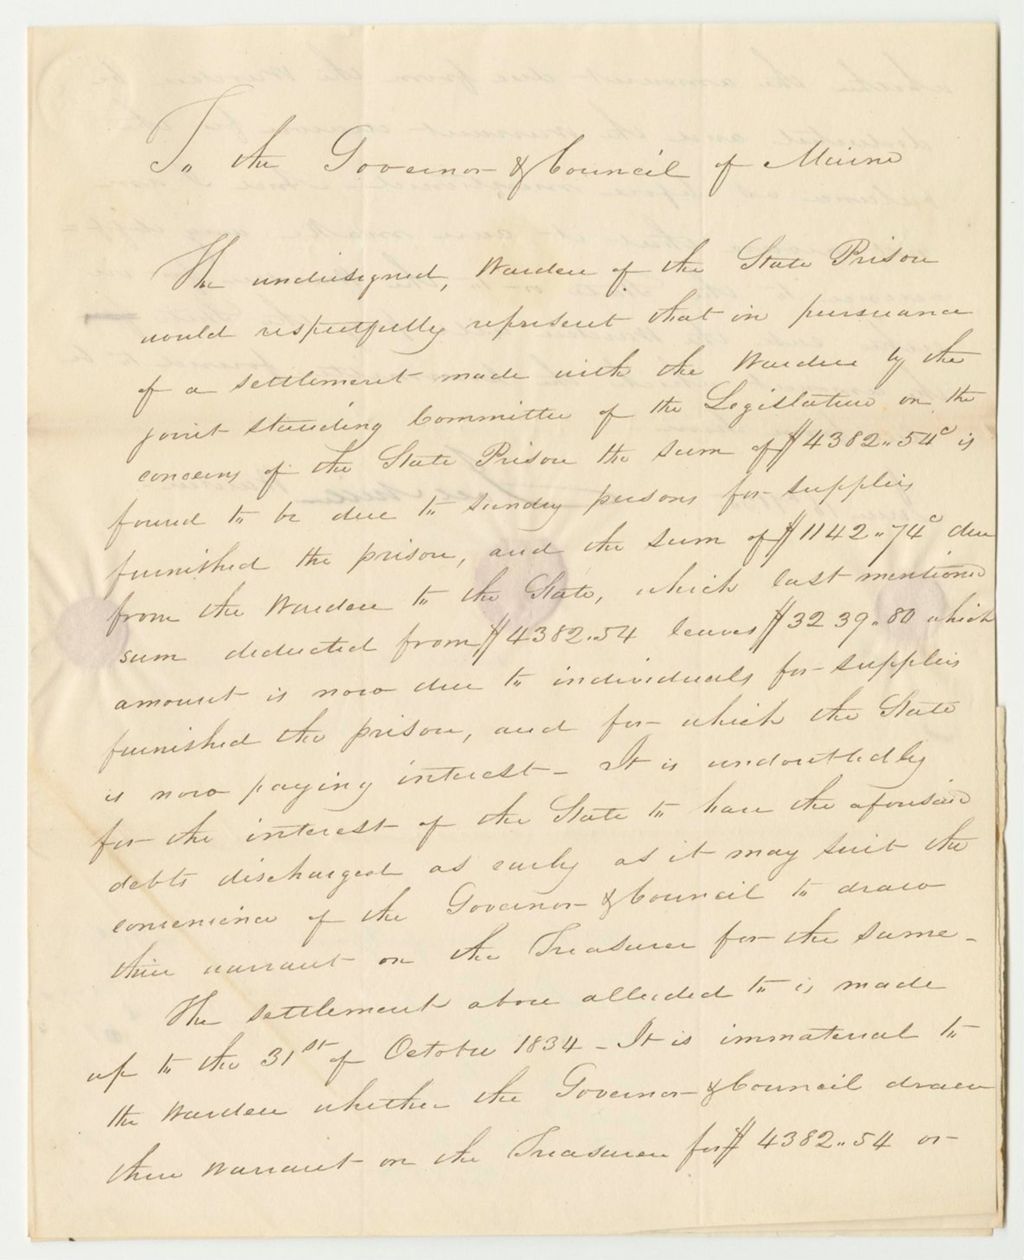 To the Governor & Council of Maine
The undersigned, Warden of the State Prison
would respectfully represent that in pursuance
of a settlement made with the Warden by the
joint standing Committee of the Legislature on the
concerns of the State Prison the sum of $4382..54c is
found to be due to sundry persons for supplies
furnished the prison, and the sum of $1142..74c due
from the Warden to the State, which last mentioned
sum deducted from $4382..54 leaves $3239..80 which
amount is now due to individuals for supplies
furnished the prison, and for which the State
is now paying interest - It is undoubtedly
for the interest of the State to have the aforesaid
debts discharged as early as it may suit the
convenience of the Governor & Council to draw
their warrant on the Treasurer for the same -
The settlement above alluded to is made
up to the 31st of October 1834 - It is immaterial to
the Warden whether the Governor & Council draw
their Warrant on the Treasurer for $4382..54 or